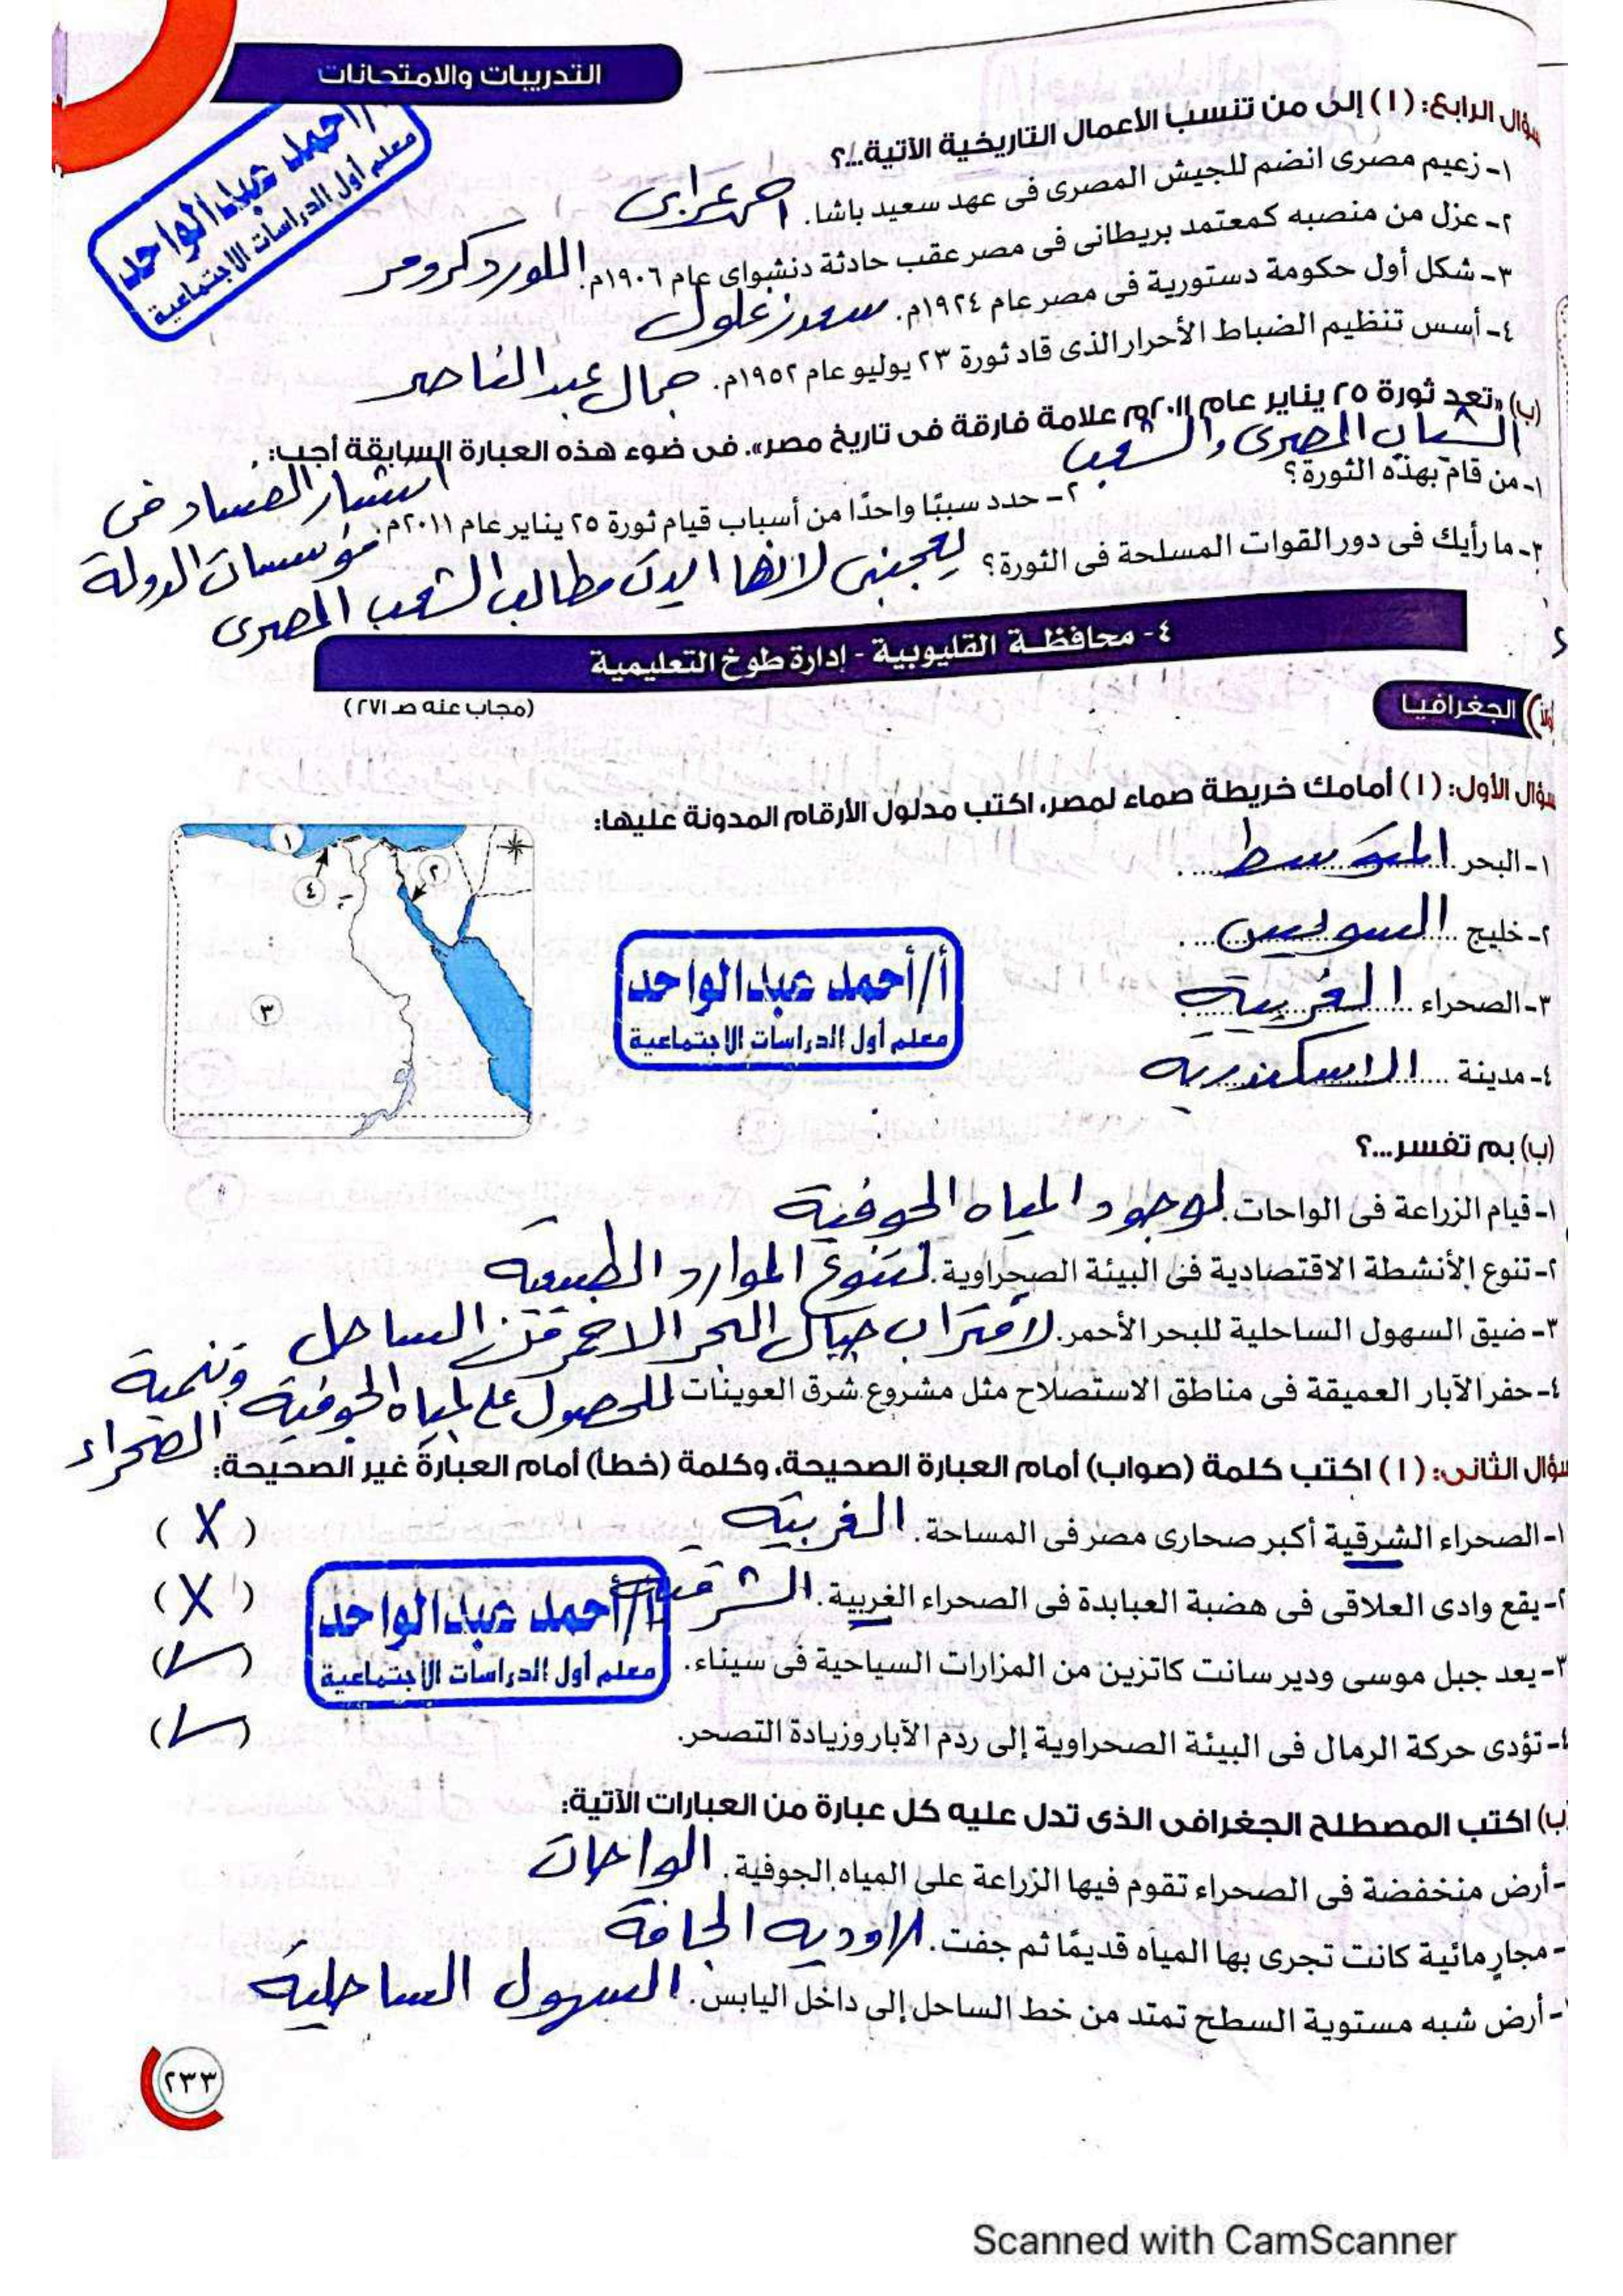 التدريبات والامتحانات
أ/أحمد عبدالواحد
معلم أول الدراسات الاجتماعية
سؤال الرابع: (١) إلى من تنسب الأعمال التاريخية الآتية...؟
١- زعيم مصرى انضم للجيش المصرى فى عهد سعيد باشا. احمد عرابى
٢- عزل من منصبه كمعتمد بريطانى فى مصر عقب حادثة دنشواى عام ١٩٠٦م. اللورد كرومر
٣- شكل أول حكومة دستورية فى مصر عام ١٩٢٤م. سعد زغلول
٤- أسس تنظيم الضباط الأحرار الذى قاد ثورة ٢٣ يوليو عام ١٩٥٢م. جمال عبد الناصر
(ب) «تعد ثورة ٢٥ يناير عام ٢٠١١م علامة فارقة فى تاريخ مصر». فى ضوء هذه العبارة السابقة أجب:
١- من قام بهذه الثورة؟ الشباب المصرى والشعب
٢- حدد سببًا واحدًا من أسباب قيام ثورة ٢٥ يناير عام ٢٠١١م. انتشار الفساد فى مؤسسات الدولة
٣- ما رأيك فى دور القوات المسلحة فى الثورة؟ يعجبنى لانها ايدت مطالب الشعب المصرى
٤- محافظة القليوبية - إدارة طوخ التعليمية
(مجاب عنه صـ ٢٧١)
الجغرافيا
سؤال الأول: (١) أمامك خريطة صماء لمصر، اكتب مدلول الأرقام المدونة عليها:
١- البحر المتوسط
٢- خليج السويس
٣- الصحراء الغربية
٤- مدينة الاسكندرية
١
٢
٤
٣
أ/أحمد عبدالواحد
معلم أول الدراسات الاجتماعية
(ب) بم تفسر...؟
١- قيام الزراعة فى الواحات. لوجود المياه الجوفية
٢- تنوع الأنشطة الاقتصادية فى البيئة الصحراوية. لتنوع الموارد الطبيعية
٣- ضيق السهول الساحلية للبحر الأحمر. لاقتراب جبال البحر الاحمر من الساحل
٤- حفر الآبار العميقة فى مناطق الاستصلاح مثل مشروع شرق العوينات للحصول على المياه الجوفية وتنمية الصحراء
سؤال الثانى: (١) اكتب كلمة (صواب) أمام العبارة الصحيحة، وكلمة (خطأ) أمام العبارة غير الصحيحة:
١- الصحراء الشرقية أكبر صحارى مصر فى المساحة. الغربية (X)
٢- يقع وادى العلاقى فى هضبة العبابدة فى الصحراء الغربية. الشرقية (X)
٣- يعد جبل موسى ودير سانت كاترين من المزارات السياحية فى سيناء. (✓)
٤- تؤدى حركة الرمال فى البيئة الصحراوية إلى ردم الآبار وزيادة التصحر. (✓)
أ/أحمد عبدالواحد
معلم أول الدراسات الاجتماعية
(ب) اكتب المصطلح الجغرافى الذى تدل عليه كل عبارة من العبارات الآتية:
- أرض منخفضة فى الصحراء تقوم فيها الزراعة على المياه الجوفية. الواحات
- مجارٍ مائية كانت تجرى بها المياه قديمًا ثم جفت. الاوديه الجافة
- أرض شبه مستوية السطح تمتد من خط الساحل إلى داخل اليابس. السهول الساحلية
٢٣٣
Scanned with CamScanner